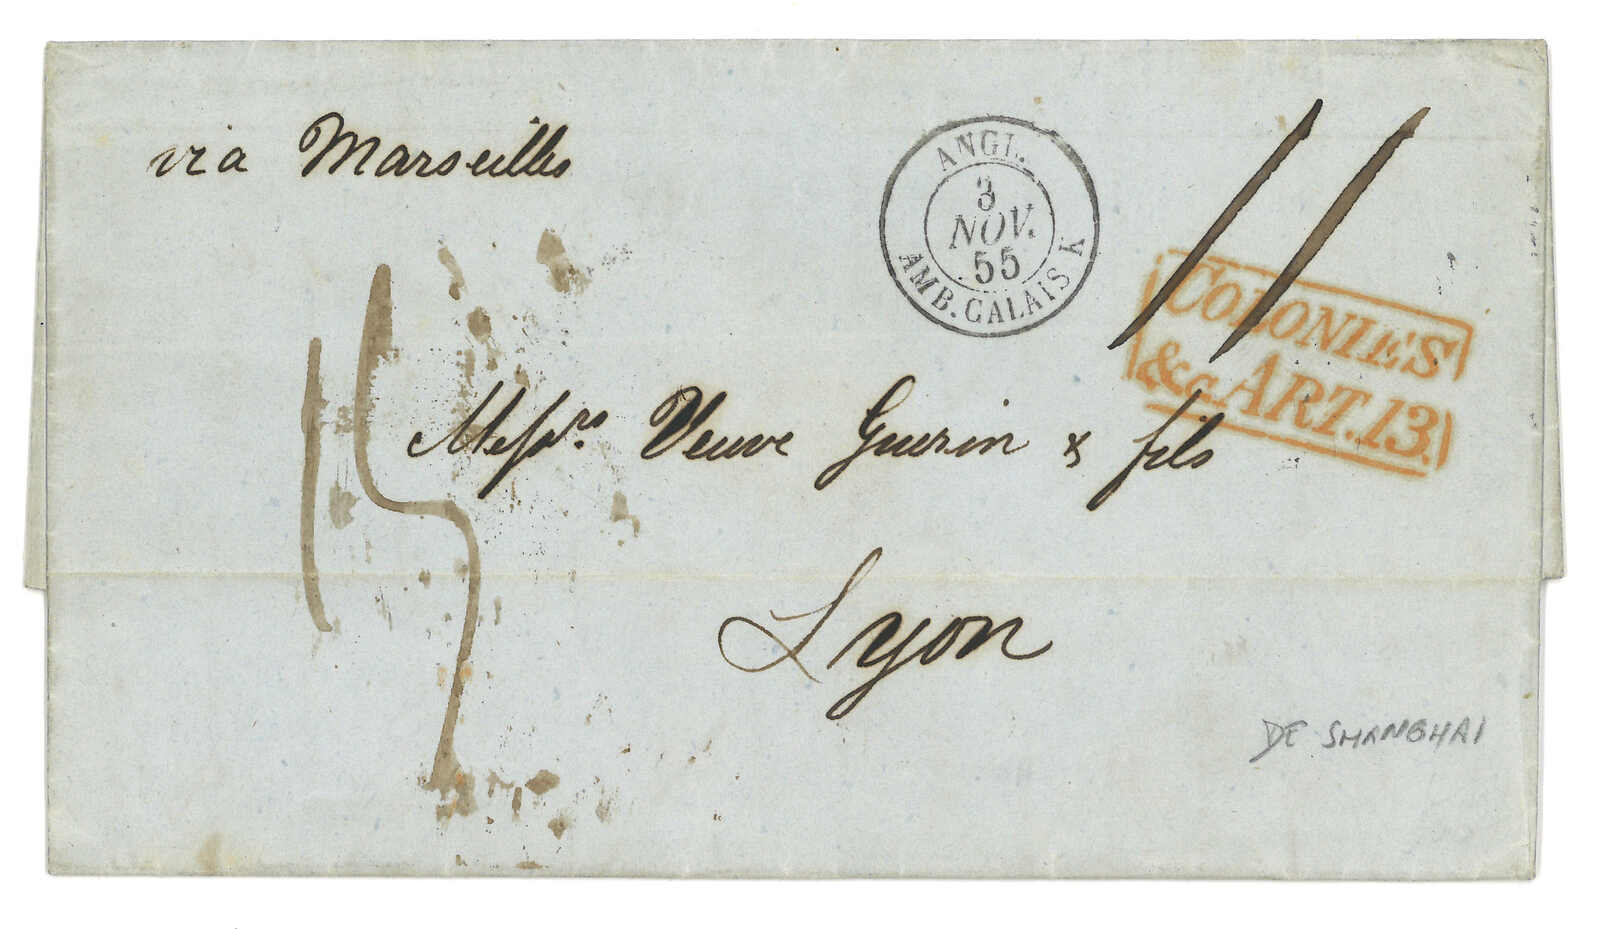 via Marseilles
ANGL.
3
NOV.
55
AMB. CALAIS K
11
COLONIES
&c ART. 13.
15
Messrs. Veuve Guerin & fils
Lyon
DE SHANGHAI